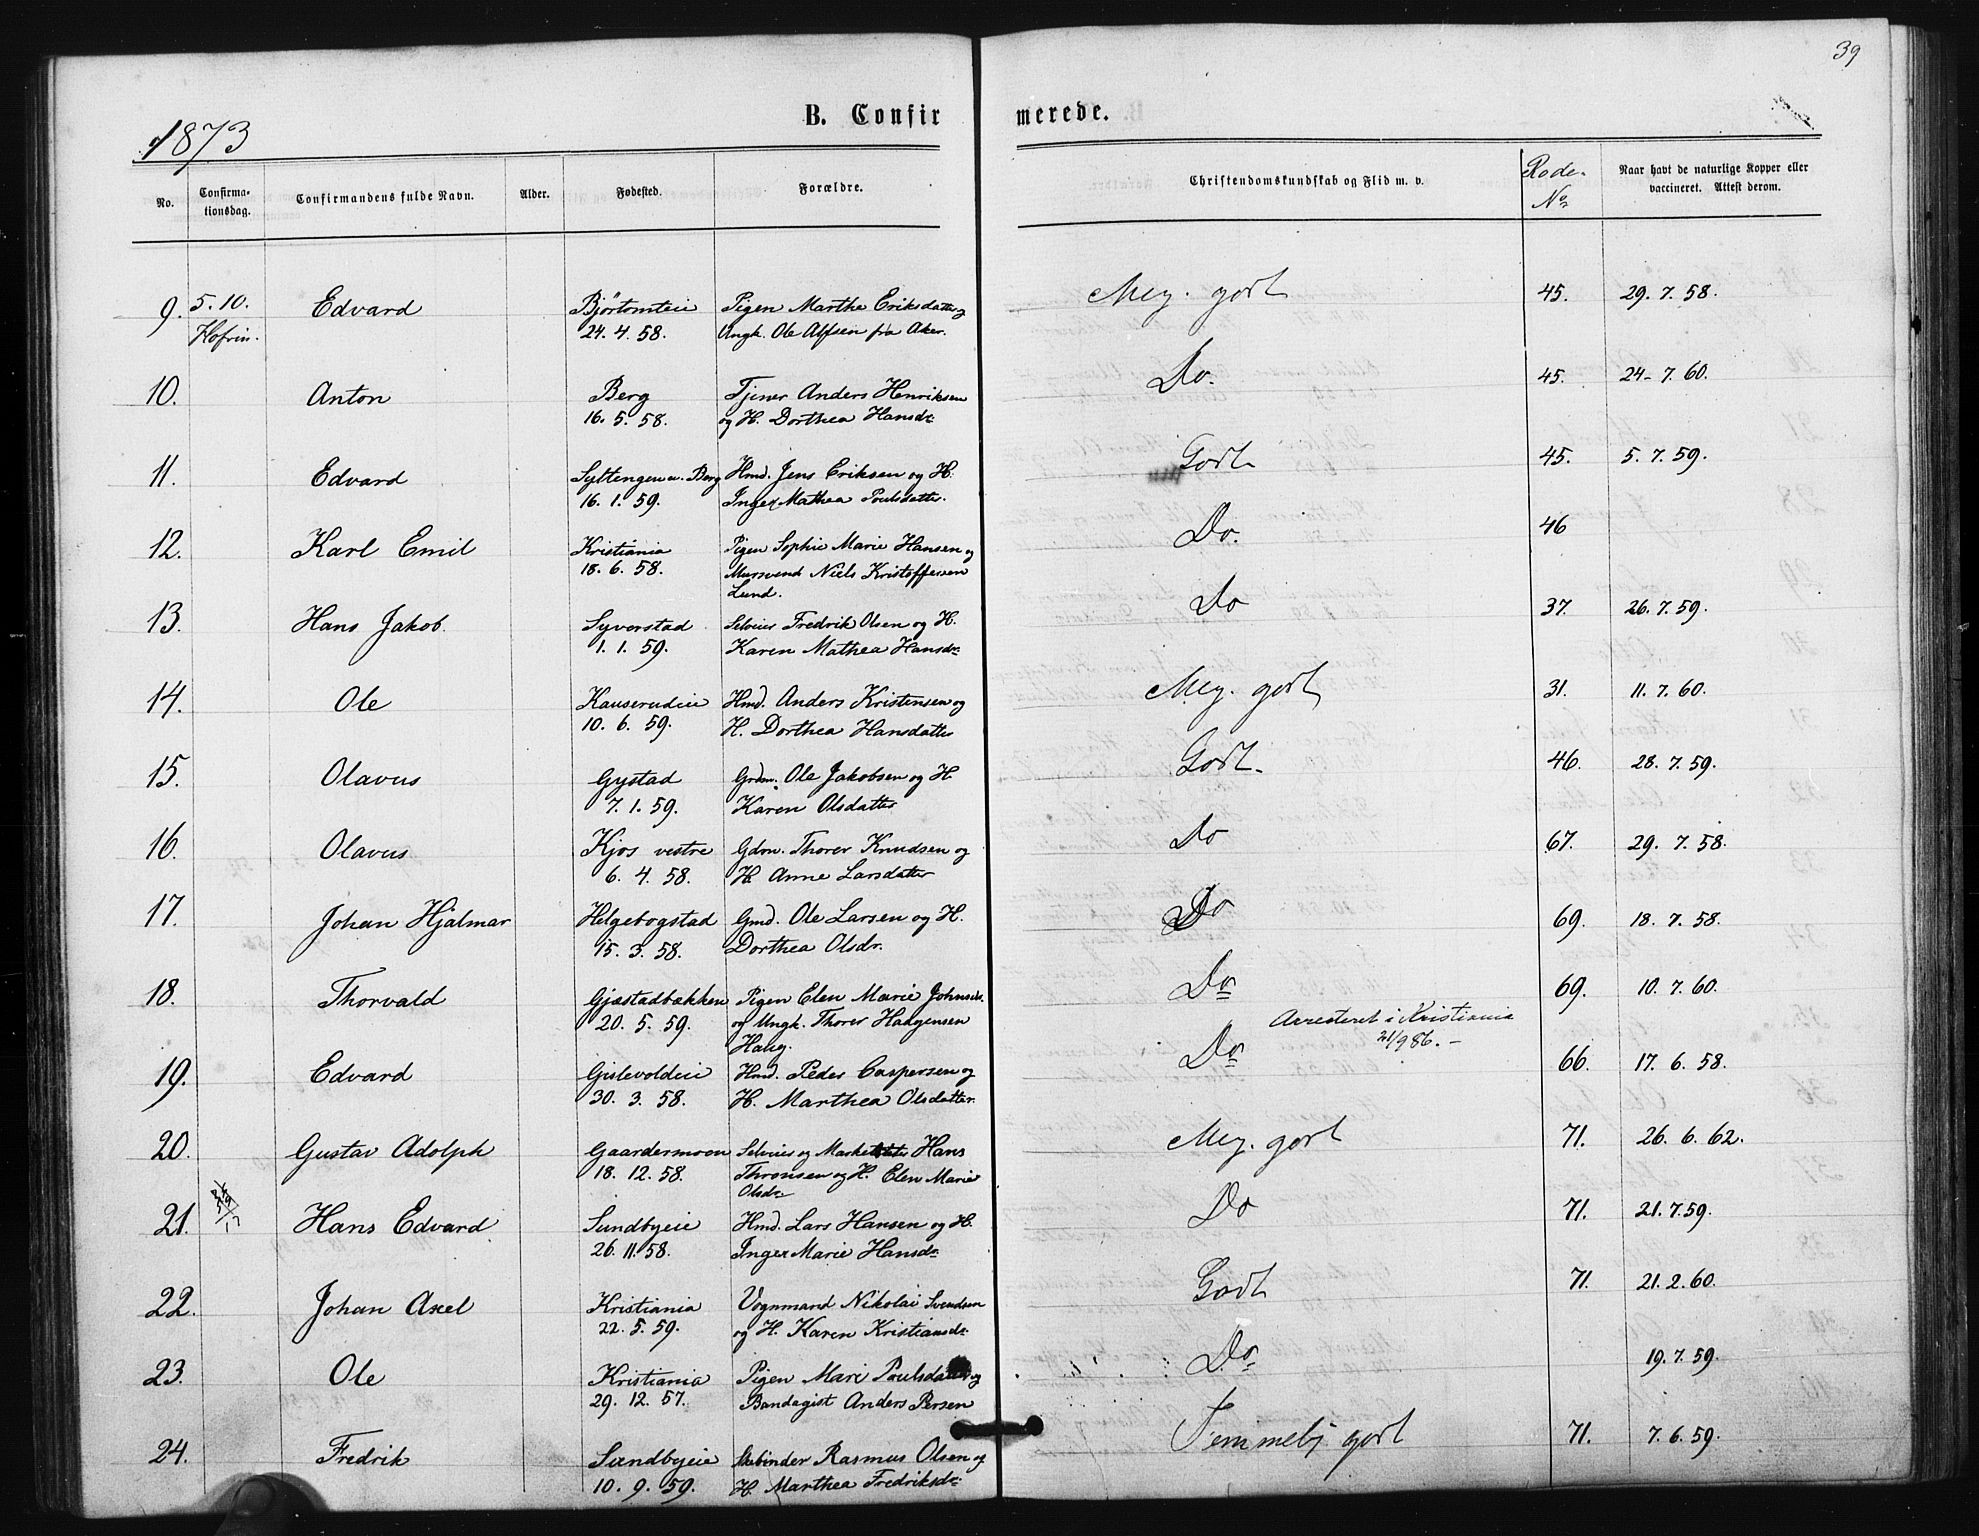 39
1873
B. Confirmerede.
No. Confirma-tionsdag. Confirmandens fulde Navn. Alder. Fødested. Forældre. Christendomskundskab og Flid m. v. Rode-No. Naar havt de naturlige Kopper eller vaccineret. Attest derom.
9. 5. 10. Edvard Bjørtomteie Pigen Marthe Eriksdatter og Meg. godt 45. 29. 7. 58.
24. 4. 58. Ungk. Ole Alfsen fra Aker.
10. Anton Berg Tjener Anders Henriksen Do. 45. 24. 7. 60.
16. 5. 58. og H. Dorthea Hansdr.
11. Edvard Syltengen u. Berg Hmd. Jens Eriksen og H. Godt 45. 5. 7. 59.
16. 1. 59. Inger Mathea Poulsdatter.
12. Karl Emil Kristiania Pigen Sophie Marie Hansen og Do. 46
18. 6. 58. Mursvend Niels Kristoffersen
Lund.
13. Hans Jakob. Syverstad Selveier Fredrik Olsen og H. Do 37. 26. 7. 59.
1. 1. 59. Karen Mathea Hansdr.
14. Ole Kauserudeie Hmd. Anders Kristensen og Meg. godt 31. 11. 7. 60.
10. 6. 59. H. Dorthea Hansdatter
15. Olavus Gystad Grdm. Ole Jakobsen og H. Godt. 46. 28. 7. 59.
7. 1. 59. Karen Olsdatter
16. Olavus Kjos vestre Gdm. Thorer Knudsen og Do 67. 29. 7. 58.
6. 4. 58. H. Anne Larsdatter
17. Johan Hjalmar Helgebogstad Gmd. Ole Larsen og H. Do 69. 18. 7. 58.
15. 3. 58. Dorthea Olsdr.
18. Thorvald Gjæstadbækken Pigen Elen Marie Johnsdr. Do 69. 10. 7. 60.
20. 5. 59. og Ungk. Thorer Haagensen
Haug.
Arresteret i Kristiania
21/9 86. –
19. Edvard Gislevoldeie Hmd. Peder Caspersen og Do 66. 17. 6. 58.
30. 3. 58. H. Marthea Olsdatter
20. Gustav Adolph Gaardermoen Selveier og Hans Meg. godt 71. 26. 6. 62.
18. 12. 58. Thronsen og H. Elen Marie
Olsdr
21. Hans Edvard Sundbyeie Hmd. Lars Hansen og H. Do 71. 21. 7. 59.
26. 11. 58. Inger Marie Hansdr.
22. Johan Axel Kristiania Vognmand Nikolai Svendsen Godt 71. 21. 2. 60.
22. 5. 59. og H. Karen Kristiansdr.
23. Ole Kristiania Pigen Mari Poulsdatter og Do 19. 7. 59.
29. 12. 57. Bandagist Anders Persen
24. Fredrik Sundbyeie Rasmus Olsen og Temmelig godt 71. 7. 6. 59.
10. 9. 59. H. Marthea Fredriksdr.